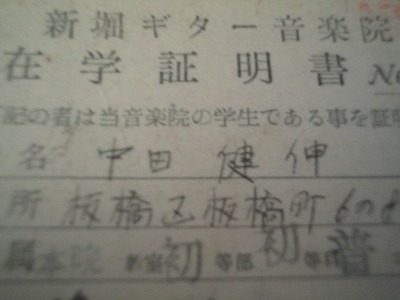 新堀ギター音楽院
在学証明書 No
記の者は当音楽院の学生である事を証明
名 中田 健伸
所 板橋区板橋町6の8
属 本院 教室 初等部 初等 普